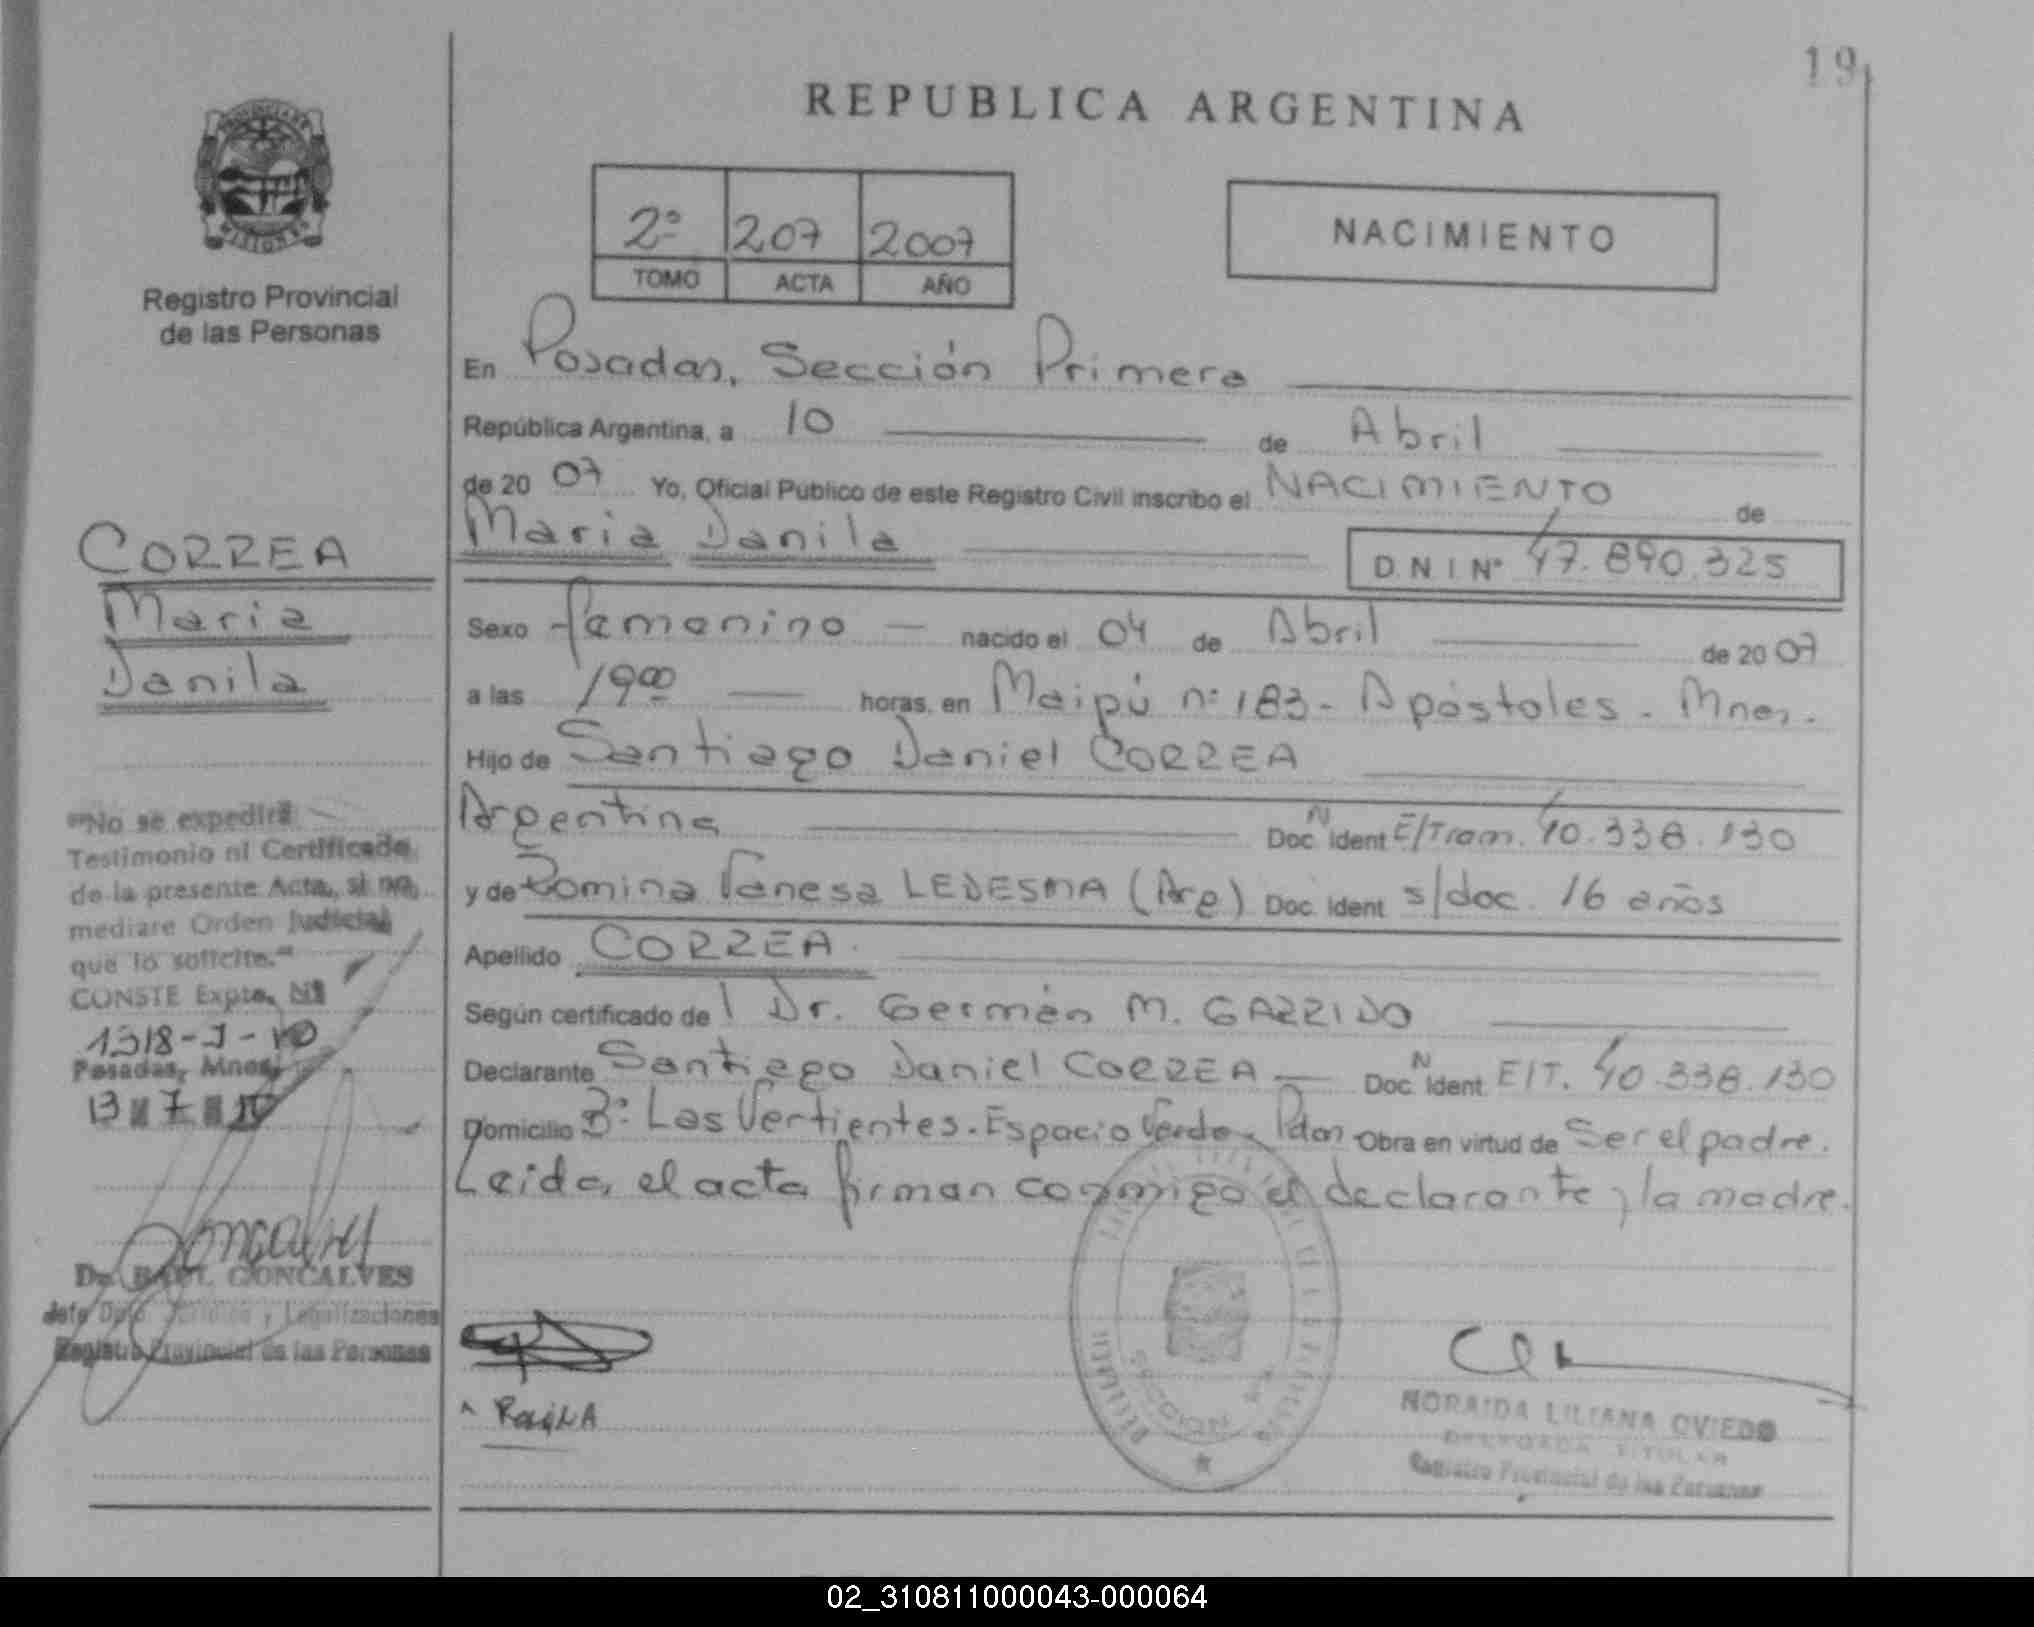 19
REPUBLICA ARGENTINA
PROVINCIA
MISIONES
Registro Provincial
de las Personas
2º 207 2007
TOMO ACTA AÑO
NACIMIENTO
En Posadas, Sección Primera
República Argentina, a 10 de Abril
de 20 07 Yo, Oficial Público de este Registro Civil inscribo el NACIMIENTO de
Maria Danila
D.N.I Nº 47.890.325
Sexo femenino nacido el 04 de Abril de 20 07
a las 19 00 horas, en Maipú nº 183 - Apóstoles - Mnes.
Hijo de Santiago Daniel CORREA
Argentina Doc. N Ident E/Tram. 40.338.130
y de Romina Vanesa LEDESMA (Arg) Doc. Ident s/doc. 16 años
Apellido CORREA.
Según certificado de l Dr. Germán M. GARRIDO
Declarante Santiago Daniel CORREA Doc. N Ident. E/T. 40.338.130
Domicilio Bº Las Vertientes - Espacio Verde - Pdas Obra en virtud de Ser el padre.
Leida el acta firman conmigo el declarante y la madre.
CORREA
Maria
Danila
"No se expedirá
Testimonio ni Certificado
de la presente Acta, si no
mediare Orden Judicial
que lo solicite."
CONSTE Expte. Nº
1318-J-10
Posadas, Mnes,
13 7 10
Dr. RAUL GONCALVES
Jefe Dpto. Jurídico y Legalizaciones
Registro Provincial de las Personas
SECCION
NORAIDA LILIANA OVIEDO
DELEGADA TITULAR
Registro Provincial de las Personas
02_310811000043-000064